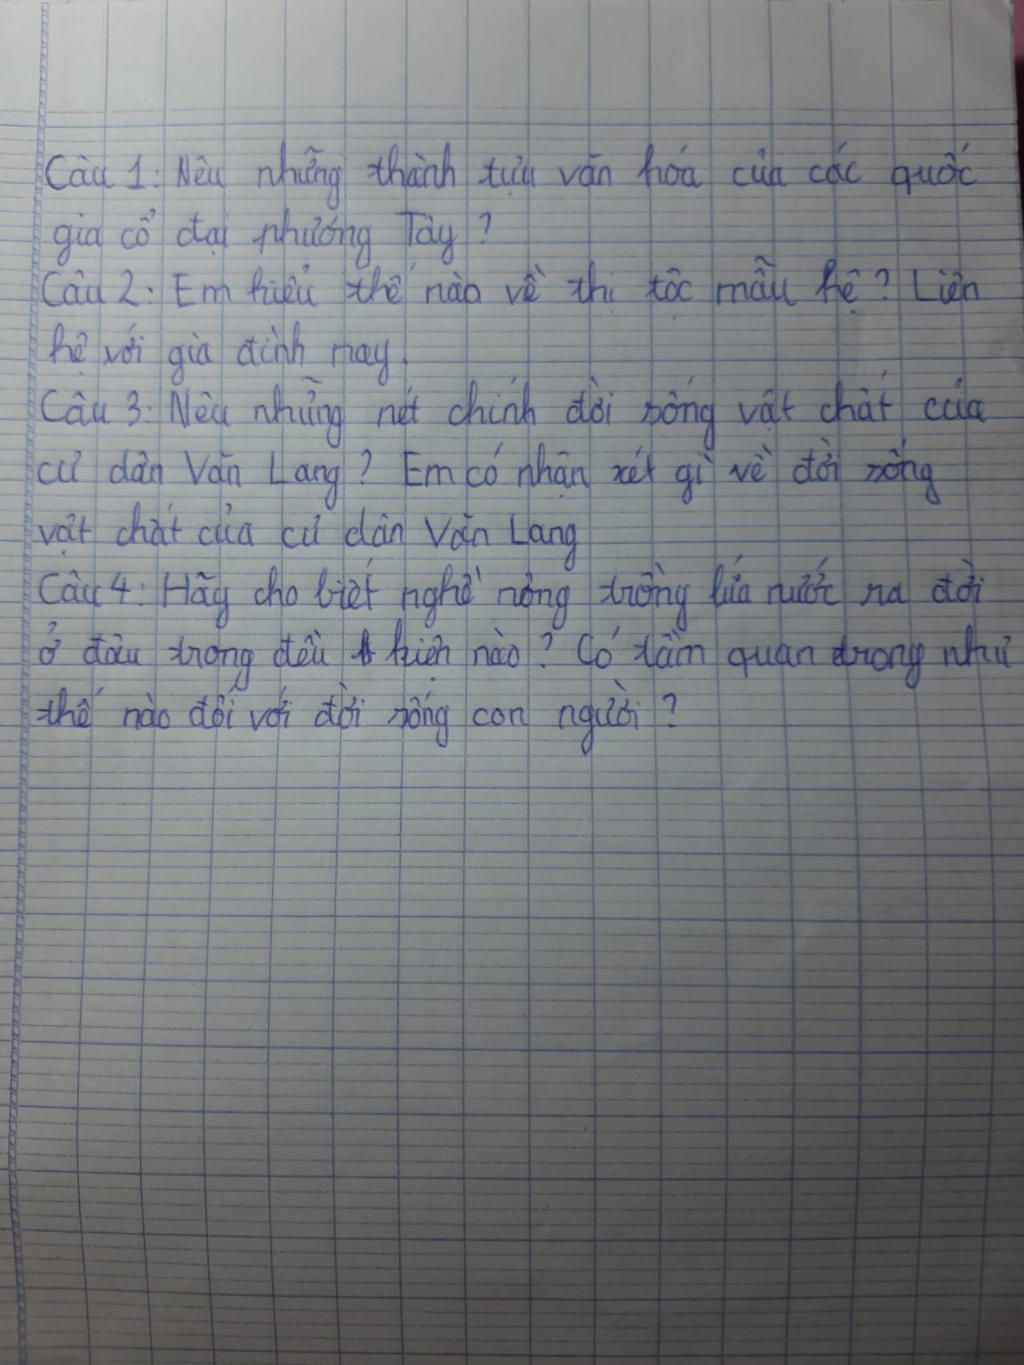 Câu 1: Nêu những thành tựu văn hóa của các quốc
gia cổ đại phương Tây?
Câu 2: Em hiểu thế nào về thị tộc mẫu hệ? Liên
hệ với gia đình nay.
Câu 3: Nêu những nét chính đời sống vật chất của
cư dân Văn Lang? Em có nhận xét gì về đời sống
vật chất của cư dân Văn Lang
Câu 4: Hãy cho biết nghề nông trồng lúa nước ra đời
ở đâu trong đều kiện nào? Có tầm quan trong như
thế nào đối với đời sống con người?